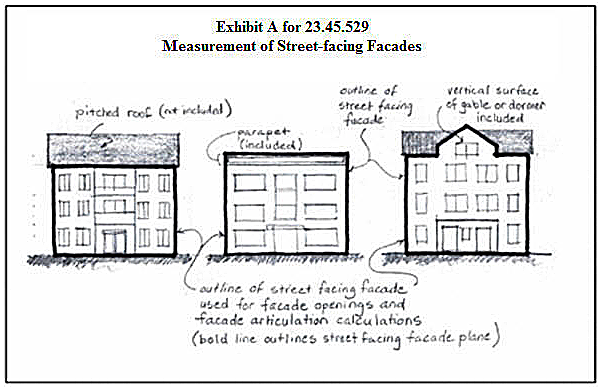 Exhibit A for 23.45.529
Measurement of Street-facing Facades
pitched roof (not included)
parapet
(included)
outline of
street facing
facade
vertical surface
of gable or dormer
included
outline of street facing facade
used for facade openings and
facade articulation calculations
(bold line outlines street facing facade plane)